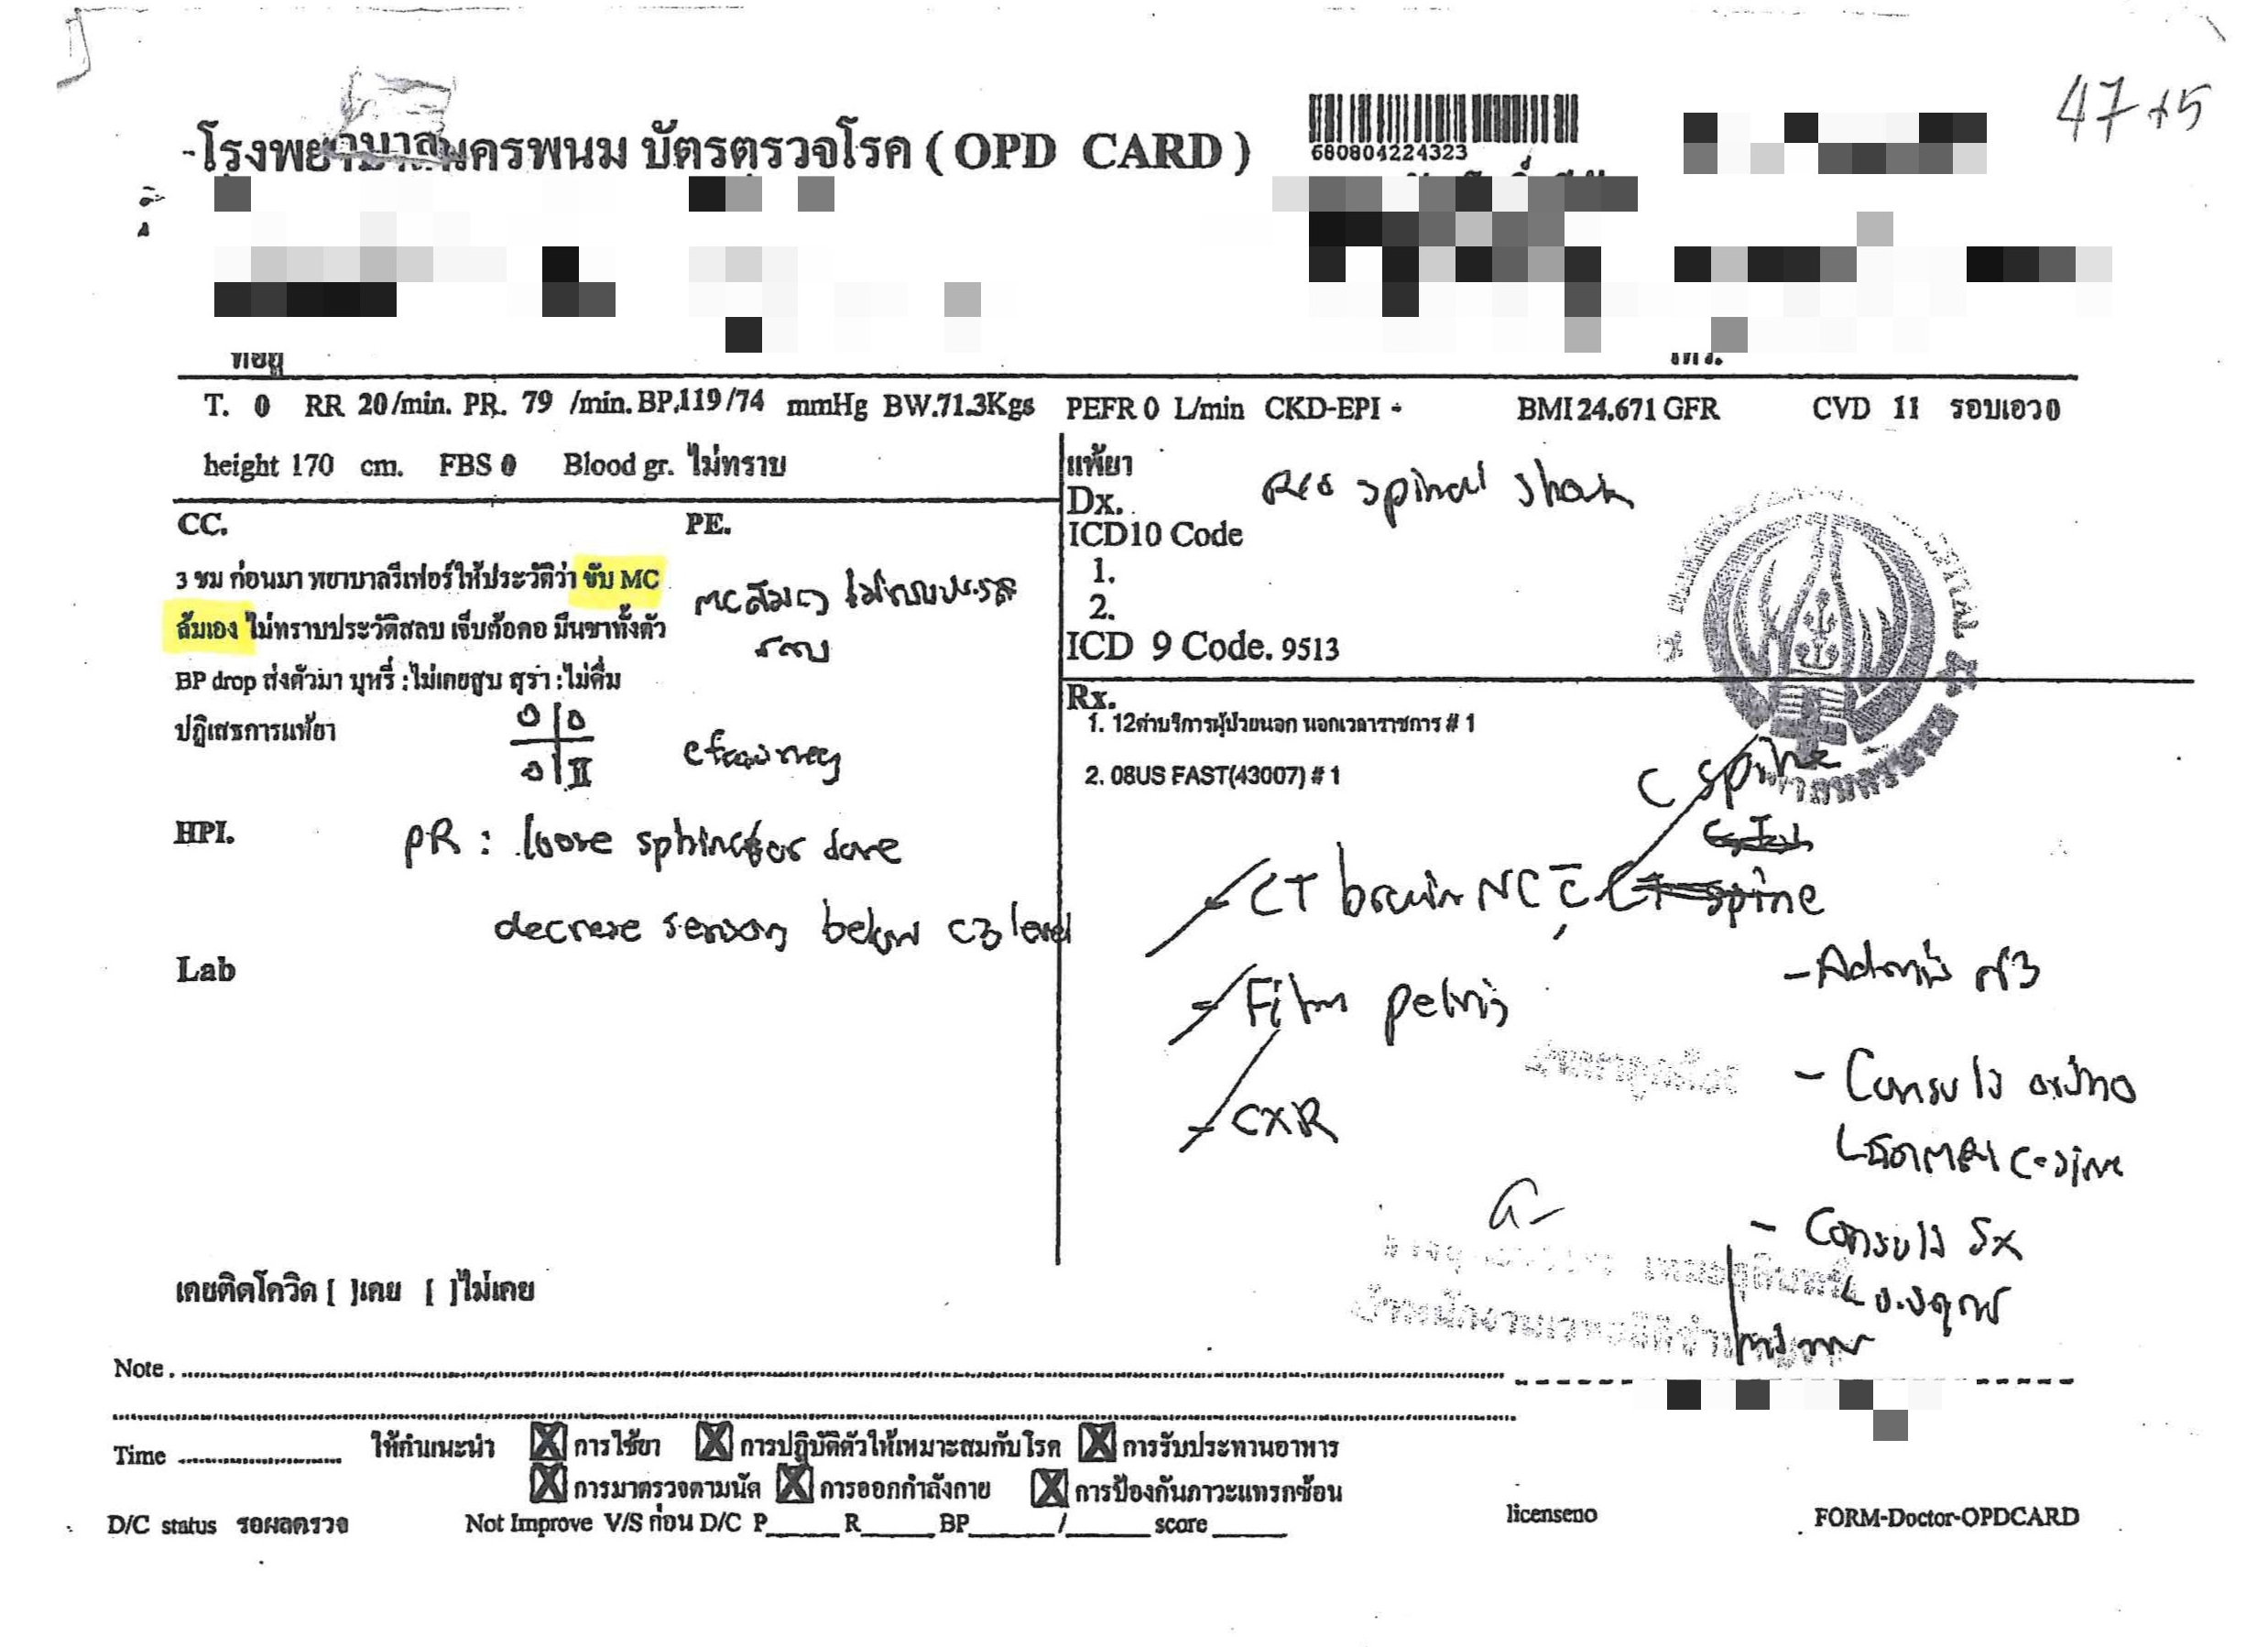 47+5
โรงพยาบาลนครพนม บัตรตรวจโรค ( OPD CARD )
680804224323
ที่อยู่
โทร.
T. 0 RR 20/min. PR. 79 /min. BP.119/74 mmHg BW.71.3Kgs PEFR 0 L/min CKD-EPI - BMI 24.671 GFR CVD 11 รอบเอว 0
height 170 cm. FBS 0 Blood gr. ไม่ทราบ
CC. PE.
3 ชม ก่อนมา พยาบาลรีเฟอร์ให้ประวัติว่า ขับ MC
ล้มเอง ไม่ทราบประวัติสลบ เจ็บต้อคอ มึนชาทั้งตัว
BP drop ส่งตัวมา บุหรี่ :ไม่เคยสูบ สุรา :ไม่ดื่ม
ปฏิเสธการแพ้ยา
MC ล้มเอง
สลบ
0 0
0 II
HPI.
PR : loose sphincter tone
decrese sensory below C3 level
Lab
เคยติดโควิด [ ]เคย [ ]ไม่เคย
แพ้ยา
Dx. R/O spinal shock
ICD10 Code
1.
2.
ICD 9 Code. 9513
Rx.
1. 12ค่าบริการผู้ป่วยนอก นอกเวลาราชการ # 1
2. 08US FAST(43007) # 1
C spine
CT brain NC c̄ CT spine
- Film pelvis
- CXR
- Admit
- Consult ortho
C-spine
- Consult Sx
Note.
Time ให้คำแนะนำ X การใช้ยา X การปฏิบัติตัวให้เหมาะสมกับโรค X การรับประทานอาหาร
X การมาตรวจตามนัด X การออกกำลังกาย X การป้องกันภาวะแทรกซ้อน
D/C status รอผลตรวจ Not Improve V/S ก่อน D/C P_____ R_____ BP_____/_____ score_____ licenseno FORM-Doctor-OPDCARD